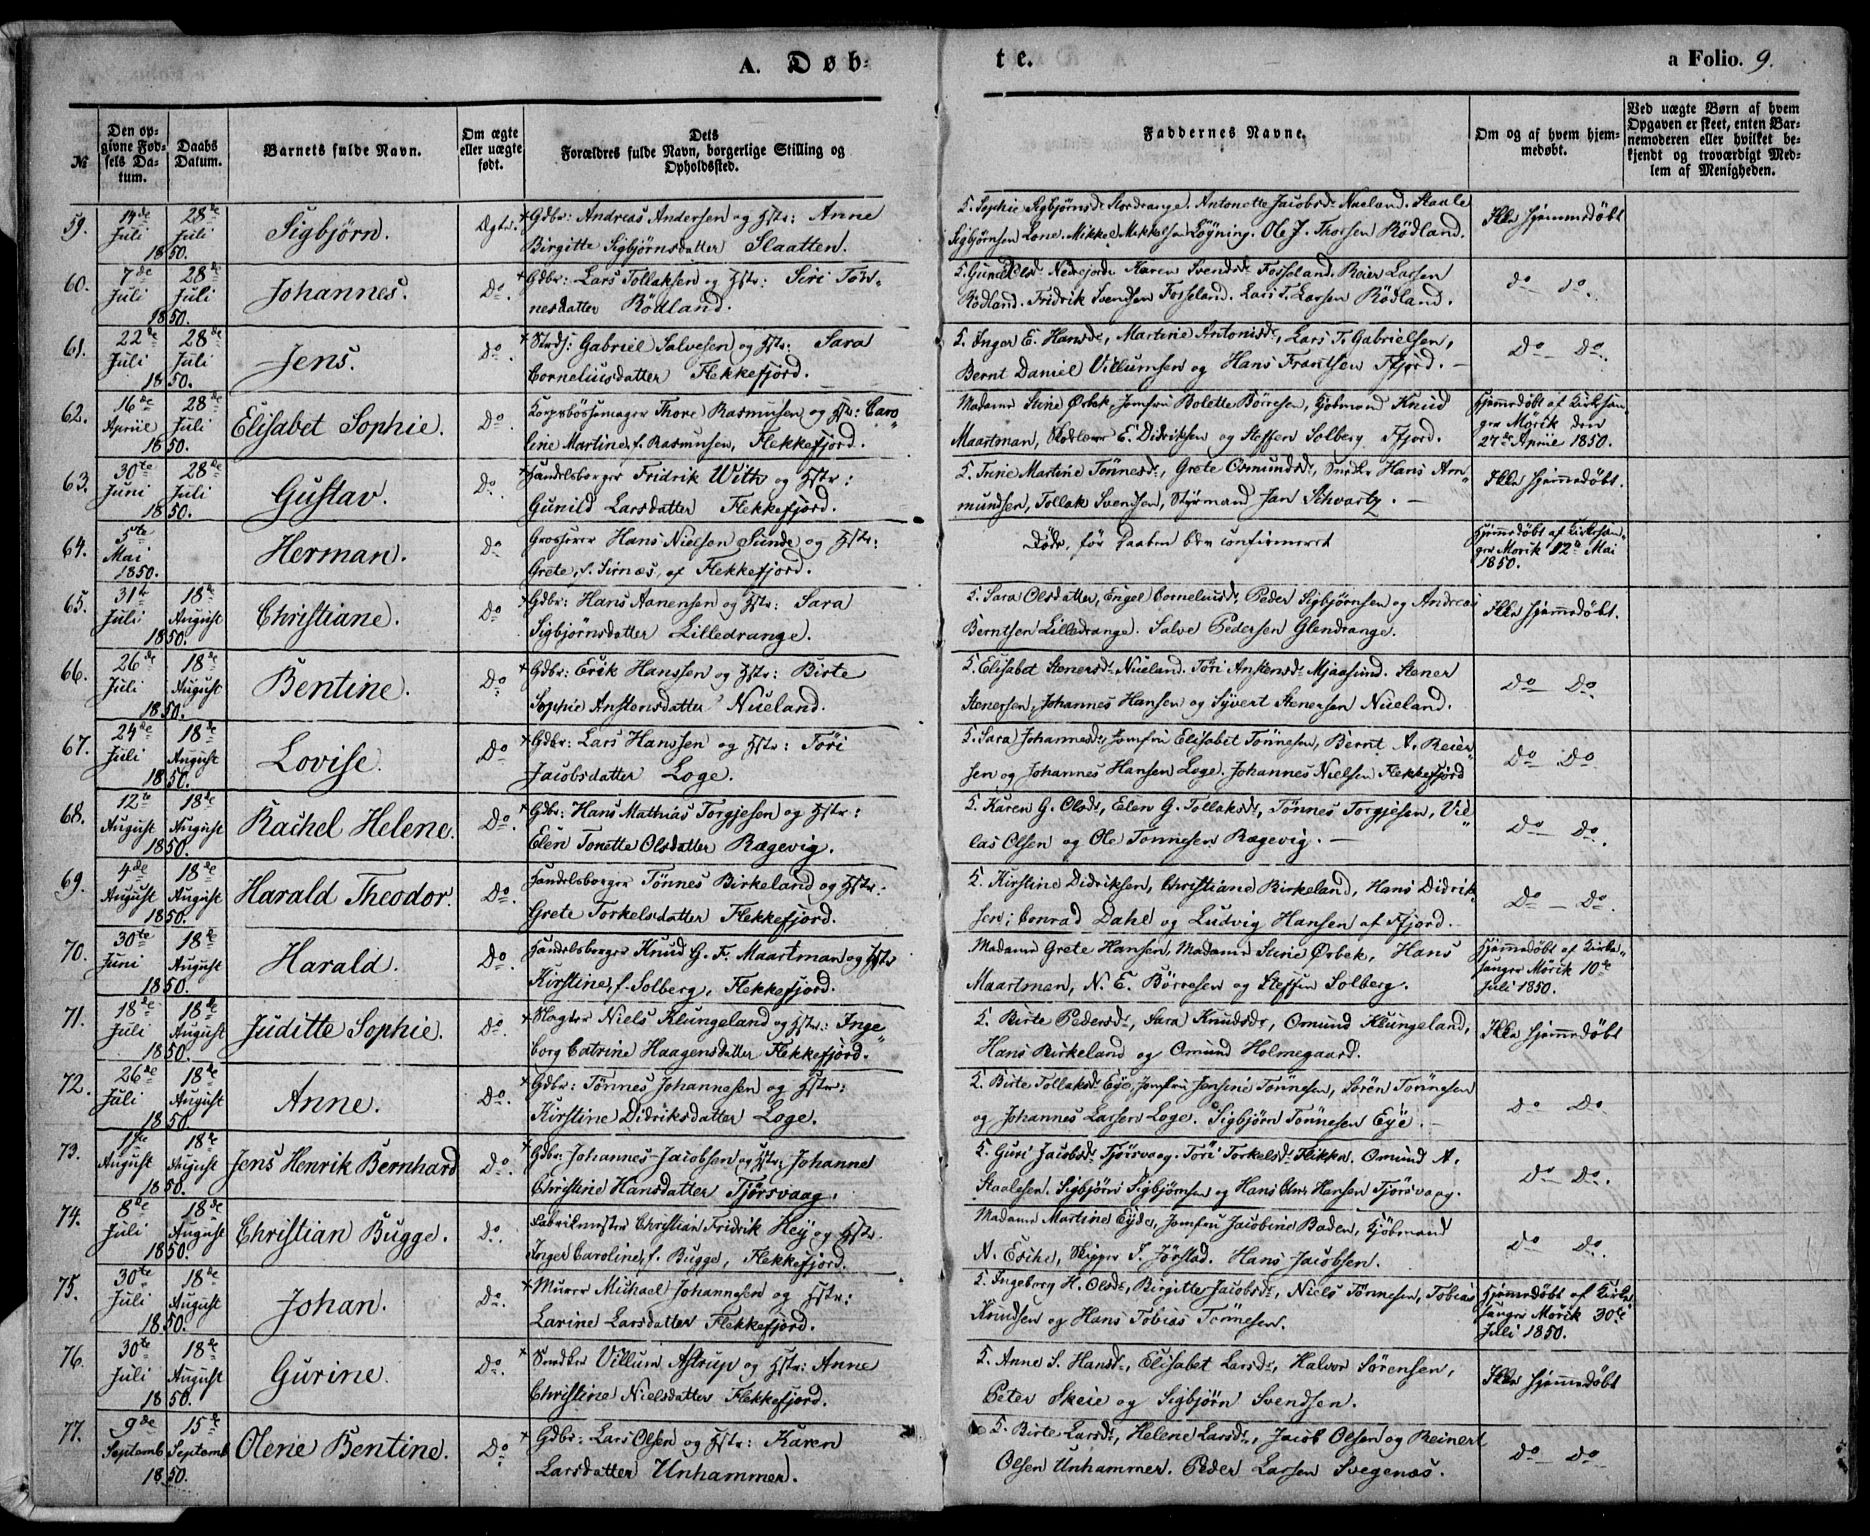 A. Døb-
te.
a Folio. 9.
№
Den op-
givne Fød-
sels Da-
tum.
Daabs
Datum.
Barnets fulde Navn.
Om ægte
eller uægte
født.
Dets
Forældres fulde Navn, borgerlige Stilling og
Opholdssted.
Faddernes Navne.
Om og af hvem hjem-
medøbt.
Ved uægte Børn af hvem
Opgaven er skeet, enten Bar-
nemoderen eller hvilket be-
kjendt og troværdigt Med-
lem af Menigheden.
59. 14de Juli 28de Juli 1850. Sigbjørn. Ægte. Gdbr: Andreas Andersen og Hstr: Anne
Birgitte Sigbjørnsdatter Slaatten.
5. Sophie Sigbjørnsdr Stordrange. Antonette Jacobsdr Nueland. Staale
Sigbjørnsen Lone. Mikkel Mikkelsen Løyning. Ole J. Thorsen Rødland.
Ikke hjemmedøbt
60. 7de Juli 28de Juli 1850. Johannes. Do. Gdbr: Lars Tollaksen og Hstr: Siri Tøn-
nesdatter Rødland.
Karen Svendsdr Fosseland. Reier Larsen
Rødland. Fridrik Svendsen Fosseland. Lars T. Larsen Rødland.
do do.
61. 22de Juli 28de Juli 1850. Jens. Do. Gabriel Salvesen og Hstr: Sara
Corneliusdatter Flekkefjord.
5. Inger E. Hansdr, Martine Antonisdr, Lars T. Gabrielsen,
Bernt Daniel Villumsen og Hans Frantsen Ffjord.
Do Do.
62. 16de Aprile 28de Juli 1850. Elisabet Sophie. Do. Korpsbøssemager Thore Rasmussen og Hstr: Caro-
line Martine, f. Rasmussen, Flekkefjord.
Madame Sine Ørbek, Jomfru Bolette Børresen, Kjøbmand Knud
Maartman, E. Didriksen og Steffen Solberg Ffjord.
Hjemmedøbt af Kirkesan-
ger Mörik den
27de Aprile 1850.
63. 30te Juni 28de Juli 1850. Gustav. Do. Handelsborger Fridrik With og Hstr:
Gunild Larsdatter Flekkefjord.
5. Trine Martine Tønnesdr, Grete Osmundsdr, Smeder Hans Am-
mundsen, Tollak Svendsen, Styrmand Jan Schvartz.
Ikke hjemmedøbt.
64. 5te Mai 1850. Herman. Do Grosserer Hans Nielsen Sunde og Hstr:
Grete, f. Sirnæs, af Flekkefjord.
Døde, før Daaben blev confirmeret
Hjemmedøbt af Kirkesan-
ger Mörik 12te Mai
1850.
65. 31te Juli 18de August 1850. Christiane. Do Gdbr: Hans Aanensen og Hstr: Sara
Sigbjørnsdatter Lilledrange.
5. Sara Olsdatter, Engel Corneliusdr, Peder Sigbjørnsen og Andreas
Berntsen Lilledrange. Salve Pedersen Glendrange.
Ikke hjemmedøbt.
66. 26de Juli 18de August 1850. Bentine. Do Gdbr: Erik Hanssen og Hstr: Birte
Sophie Anstensdatter Nueland.
5. Elisabet Stenersdr Nueland. Töri Anstensdr Mjaasund. Stener
Stenersen, Johannes Hansen og Syvert Stenersen Nueland.
Do Do.
67. 24de Juli 18de August 1850. Lovise. Do Gdbr: Lars Hanssen og Hstr: Töri
Jacobsdatter Loge.
5. Sara Johannesdr, Jomfru Elisabet Tønnesen, Bernt A. Reier-
sen og Johannes Hansen Loge. Johannes Nielsen Flekkefjord
Do Do.
68. 12te August 18de August 1850. Rachel Helene. Do. Gdbr: Hans Mathias Torgjesen og Hstr:
Elen Tonette Olsdatter Rægevig.
5. Karen G. Olsdr, Elen G. Tollaksdr, Tønnes Torgjesen, Vil-
las Olsen og Ole Tønnesen Rægevig.
Do Do.
69. 4de August 18de August 1850. Harald Theodor. Do. Handelsborger Tønnes Birkeland og Hstr:
Grete Torkelsdatter Flekkefjord.
5. Kirstine Didriksen, Christiane Birkeland, Hans Didrik-
sen, Conrad Dahl og Ludvig Hansen af Ffjord.
Do Do.
70. 30te Juni 18de August 1850. Harald. Do. Handelsborger Knud G. F. Maartman og Hstr
Kirstine, f. Solberg, Flekkefjord.
Madame Grete Hansen, Madame Sine Ørbek, Hans
Maartman, N. E. Børresen og Steffen Solberg.
Hjemmedøbt af Kirke-
sanger Mörik 10de
Juli 1850.
71. 18de Juli 18de August 1850. Juditte Sophie. Do. Slagter Niels Klungeland og Hstr: Inge-
borg Catrine Haagensdatter Flekkefjord.
5. Birte Pedersdr, Sara Knudsdr, Omund Klungeland,
Hans Birkeland og Omund Holmegaard.
Ikke hjemmedøbt
72. 26de Juli 18de August 1850. Anne. Do. Gdbr: Tønnes Johannesen og Hstr:
Kirstine Didriksdatter Loge.
5. Birte Tollaksdr Eye, Jomfru Jensine Tønnesen, Sören Tönnesen
og Johannes Larsen Loge. Sigbjörn Tönnesen Eye.
Do Do.
73. 1ste August 18de August 1850. Jens Henrik Bernhard Do. Gdbr: Johannes Jacobsen og Hstr: Johanne
Christine Hansdatter Tjørsvaag.
5. Guri Jacobsdr Tjørsvaag. Töri Torkelsdr Flikka. Omund A.
Staalesen. Sigbjörn Sigbjörnsen og Hans Chr. Hansen Tjørsvaag.
Do Do.
74. 8de Juli 18de August 1850. Christian Bugge. Do. Fabrikmester Christian Fridrik Hey og Hstr.
Inger Caroline, f. Bugge, Flekkefjord.
Madame Martine Eyde, Jomfru Jacobine Baden, Kjøbmand
A. Skipper J. Jørstad. Hans Jacobsen.
Do Do.
75. 30te Juli 18de August 1850. Johan. Do. Murer Michael Johannesen og Hstr:
Larine Larsdatter Flekkefjord.
5. Ingeborg H. Olsdr, Birgitte Jacobsdr, Niels Tönnesen, Tobias
Knudsen og Hans Tobias Tönnesen.
Hjemmedøbt af Kirke-
sanger Mörik 30te
Juli 1850.
76. 30te Juli 18de August 1850. Gurine. Do. Smeder Villum Astrup og Hstr: Anne
Christine Nielsdatter Flekkefjord.
5. Anne S. Hansdr, Elisabet Larsdr, Halvor Sørensen,
Peter Skeie og Sigbjörn Svendsen.
Ikke hjemmedøbt
77. 9de Septemb 15de Septemb 1850. Olene Bentine. Do Gdbr: Lars Olsen og Hstr: Karen
Larsdatter Unhammer.
5. Birte Larsdr, Helene Larsdr, Jacob Olsen og Reinert
Olsen Unhammer. Peder Larsen Svegenæs.
Do Do.